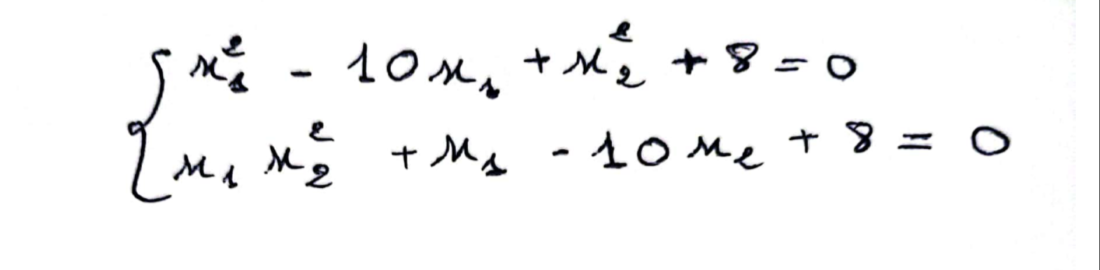 x₁² - 10x₁ + x₂² + 8 = 0
x₁ x₂² + x₁ - 10x₂ + 8 = 0